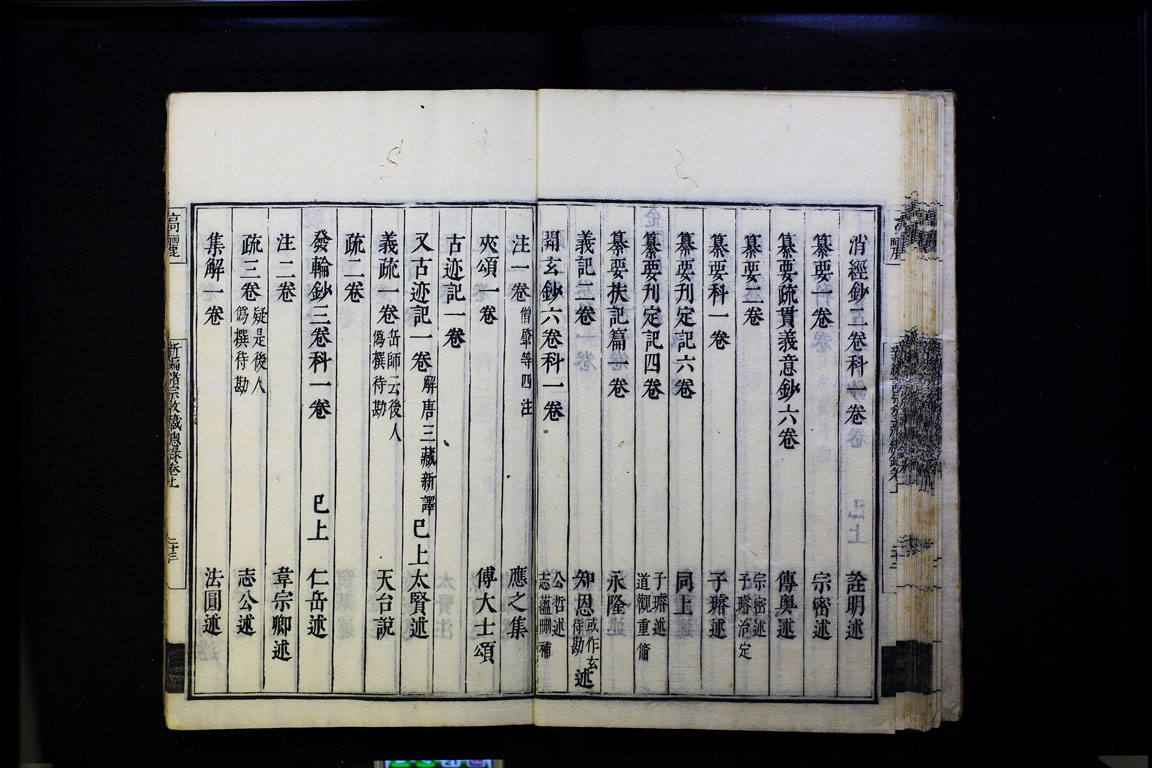 消經鈔二卷科一卷 詮明述
纂要一卷 宗密述
纂要疏貫義意鈔六卷 傳奧述
纂要二卷 宗密述子璿治定
纂要科一卷 子璿述
纂要刊定記六卷 同上
纂要刊定記四卷 子璿述道觀重脩
纂要扶記篇一卷 永隆述
義記二卷 知恩或作玄待勘述
開玄鈔六卷科一卷 公哲述志蘊刪補
注一卷僧肇等四注 應之集
夾頌一卷 傅大士頌
古迹記一卷
又古迹記一卷解唐三藏新譯 已上太賢述
義疏一卷岳師云後人僞撰待勘 天台說
疏二卷
發輪鈔三卷科一卷 已上 仁岳述
注二卷 韋宗卿述
疏三卷疑是後人僞撰待勘 志公述
集解一卷 法圓述
高麗 新編諸宗教藏總錄卷上 二十三